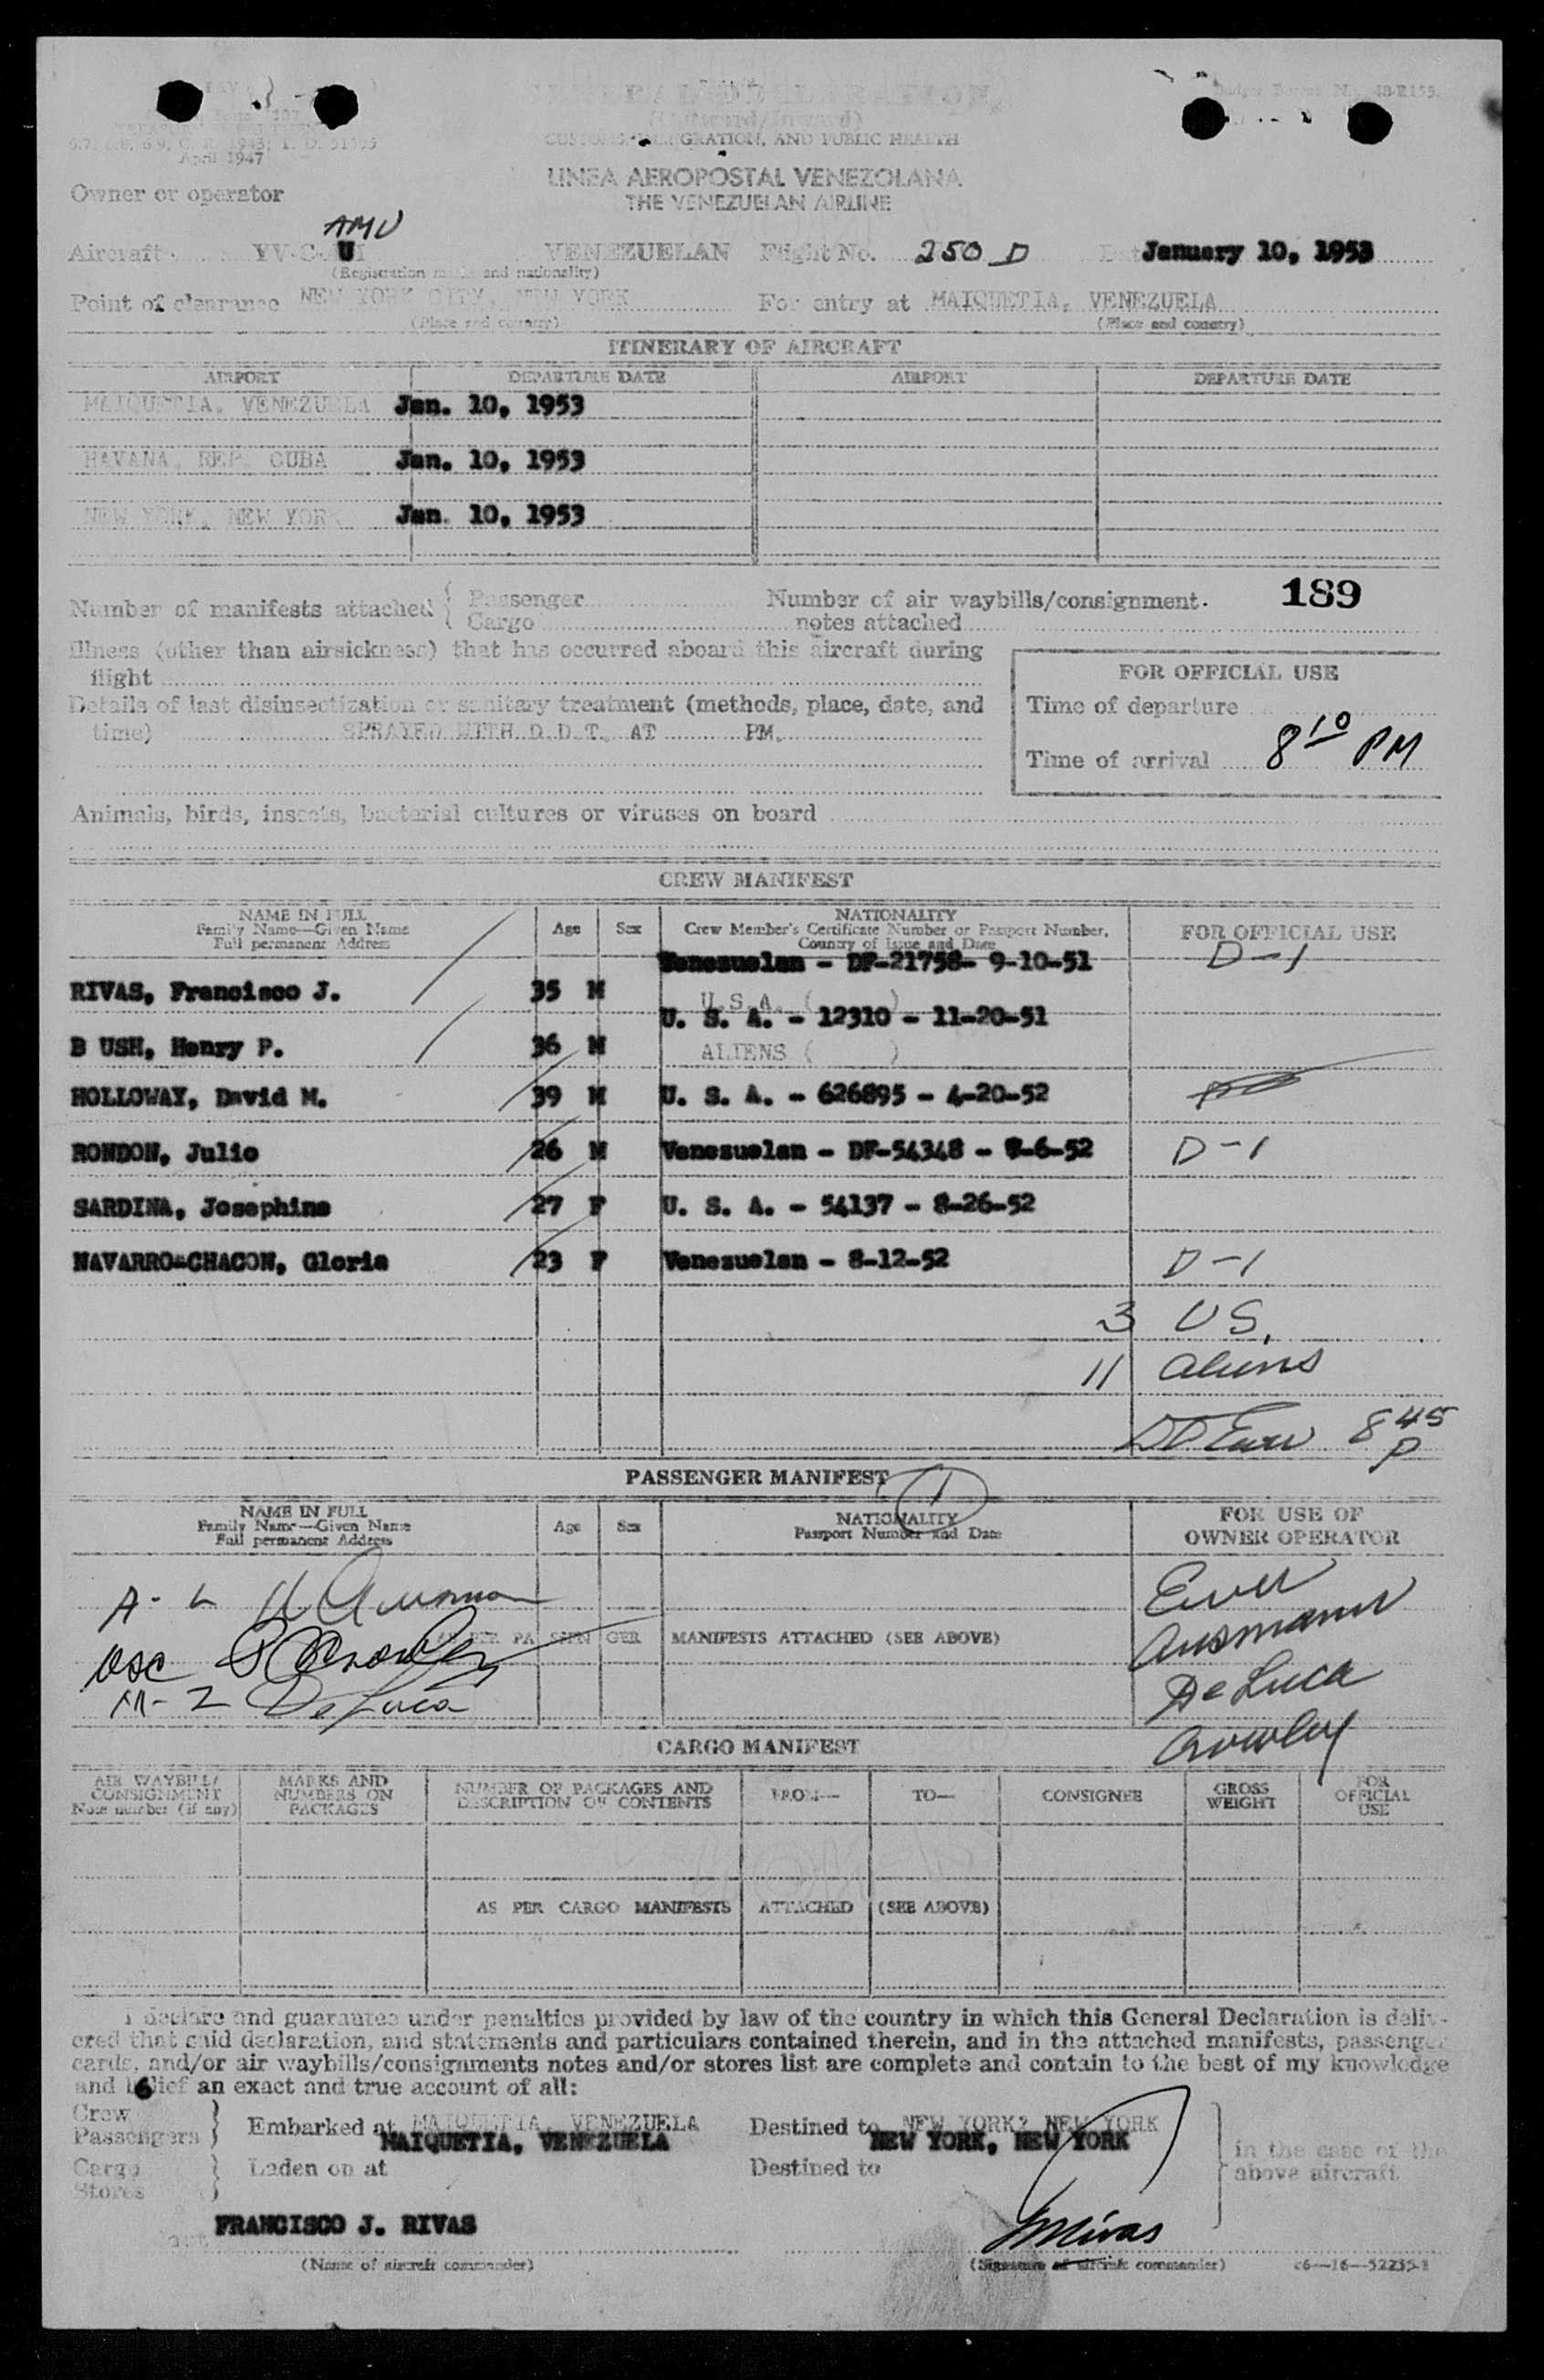 April 1947
CUSTOMS, IMMIGRATION, AND PUBLIC HEALTH
LINEA AEROPOSTAL VENEZOLANA
THE VENEZUELAN AIRLINE
Owner or operator
AMU
Aircraft YV-C- U VENEZUELAN Flight No. 250 D January 10, 1953
(Registration marks and nationality)
Point of clearance NEW YORK CITY, NEW YORK For entry at MAIQUETIA, VENEZUELA
(Place and country) (Place and country)
ITINERARY OF AIRCRAFT
AIRPORT DEPARTURE DATE AIRPORT DEPARTURE DATE
MAIQUETIA, VENEZUELA Jan. 10, 1953
HAVANA, REP. CUBA Jan. 10, 1953
NEW YORK, NEW YORK Jan. 10, 1953
189
Number of manifests attached { Passenger Number of air waybills/consignment
Cargo notes attached
Illness (other than airsickness) that has occurred aboard this aircraft during
flight
FOR OFFICIAL USE
Details of last disinsectization or sanitary treatment (methods, place, date, and
time) SPRAYED WITH D.D.T. AT PM.
Time of departure
Time of arrival 8 10 PM
Animals, birds, insects, bacterial cultures or viruses on board
CREW MANIFEST
NAME IN FULL
Family Name—Given Name
Full permanent Address
Age Sex
NATIONALITY
Crew Member's Certificate Number or Passport Number,
Country of Issue and Date
FOR OFFICIAL USE
RIVAS, Francisco J. 35 M Venezuelan - DF-21758- 9-10-51 D-1
U.S.A. ( )
B USH, Henry P. 36 M U. S. A. - 12310 - 11-20-51
ALIENS ( )
HOLLOWAY, David M. 39 M U. S. A. - 626895 - 4-20-52
RONDON, Julio 26 M Venezuelan - DF-54348 - -6-52 D-1
SARDINA, Josephine 27 F U. S. A. - 54137 - 8-26-52
NAVARRO-CHACON, Gloria 23 F Venezuelan - 8-12-52 D-1
3 US.
11 aliens
8 45 P
PASSENGER MANIFEST
1
NAME IN FULL
Family Name—Given Name
Full permanent Address
Age Sex
NATIONALITY
Passport Number and Date
FOR USE OF
OWNER OPERATOR
Ausmann
PER PASSENGER MANIFESTS ATTACHED (SEE ABOVE)
De Luca
De Luca
Crowley
CARGO MANIFEST
AIR WAYBILL/
CONSIGNMENT
Note number (if any)
MARKS AND
NUMBERS ON
PACKAGES
NUMBER OF PACKAGES AND
DESCRIPTION OF CONTENTS
FROM—
TO—
CONSIGNEE
GROSS
WEIGHT
FOR
OFFICIAL
USE
AS PER CARGO MANIFESTS ATTACHED (SEE ABOVE)
I declare and guarantee under penalties provided by law of the country in which this General Declaration is deliv-
ered that said declaration, and statements and particulars contained therein, and in the attached manifests, passenger
cards, and/or air waybills/consignments notes and/or stores list are complete and contain to the best of my knowledge
and belief an exact and true account of all:
Crew
Passengers } Embarked at MAIQUETIA, VENEZUELA Destined to NEW YORK, NEW YORK
MAIQUETIA, VENEZUELA NEW YORK, NEW YORK
Cargo
Stores } Laden on at Destined to
in the case of the
above aircraft
FRANCISCO J. RIVAS
(Name of aircraft commander) (Signature of aircraft commander)